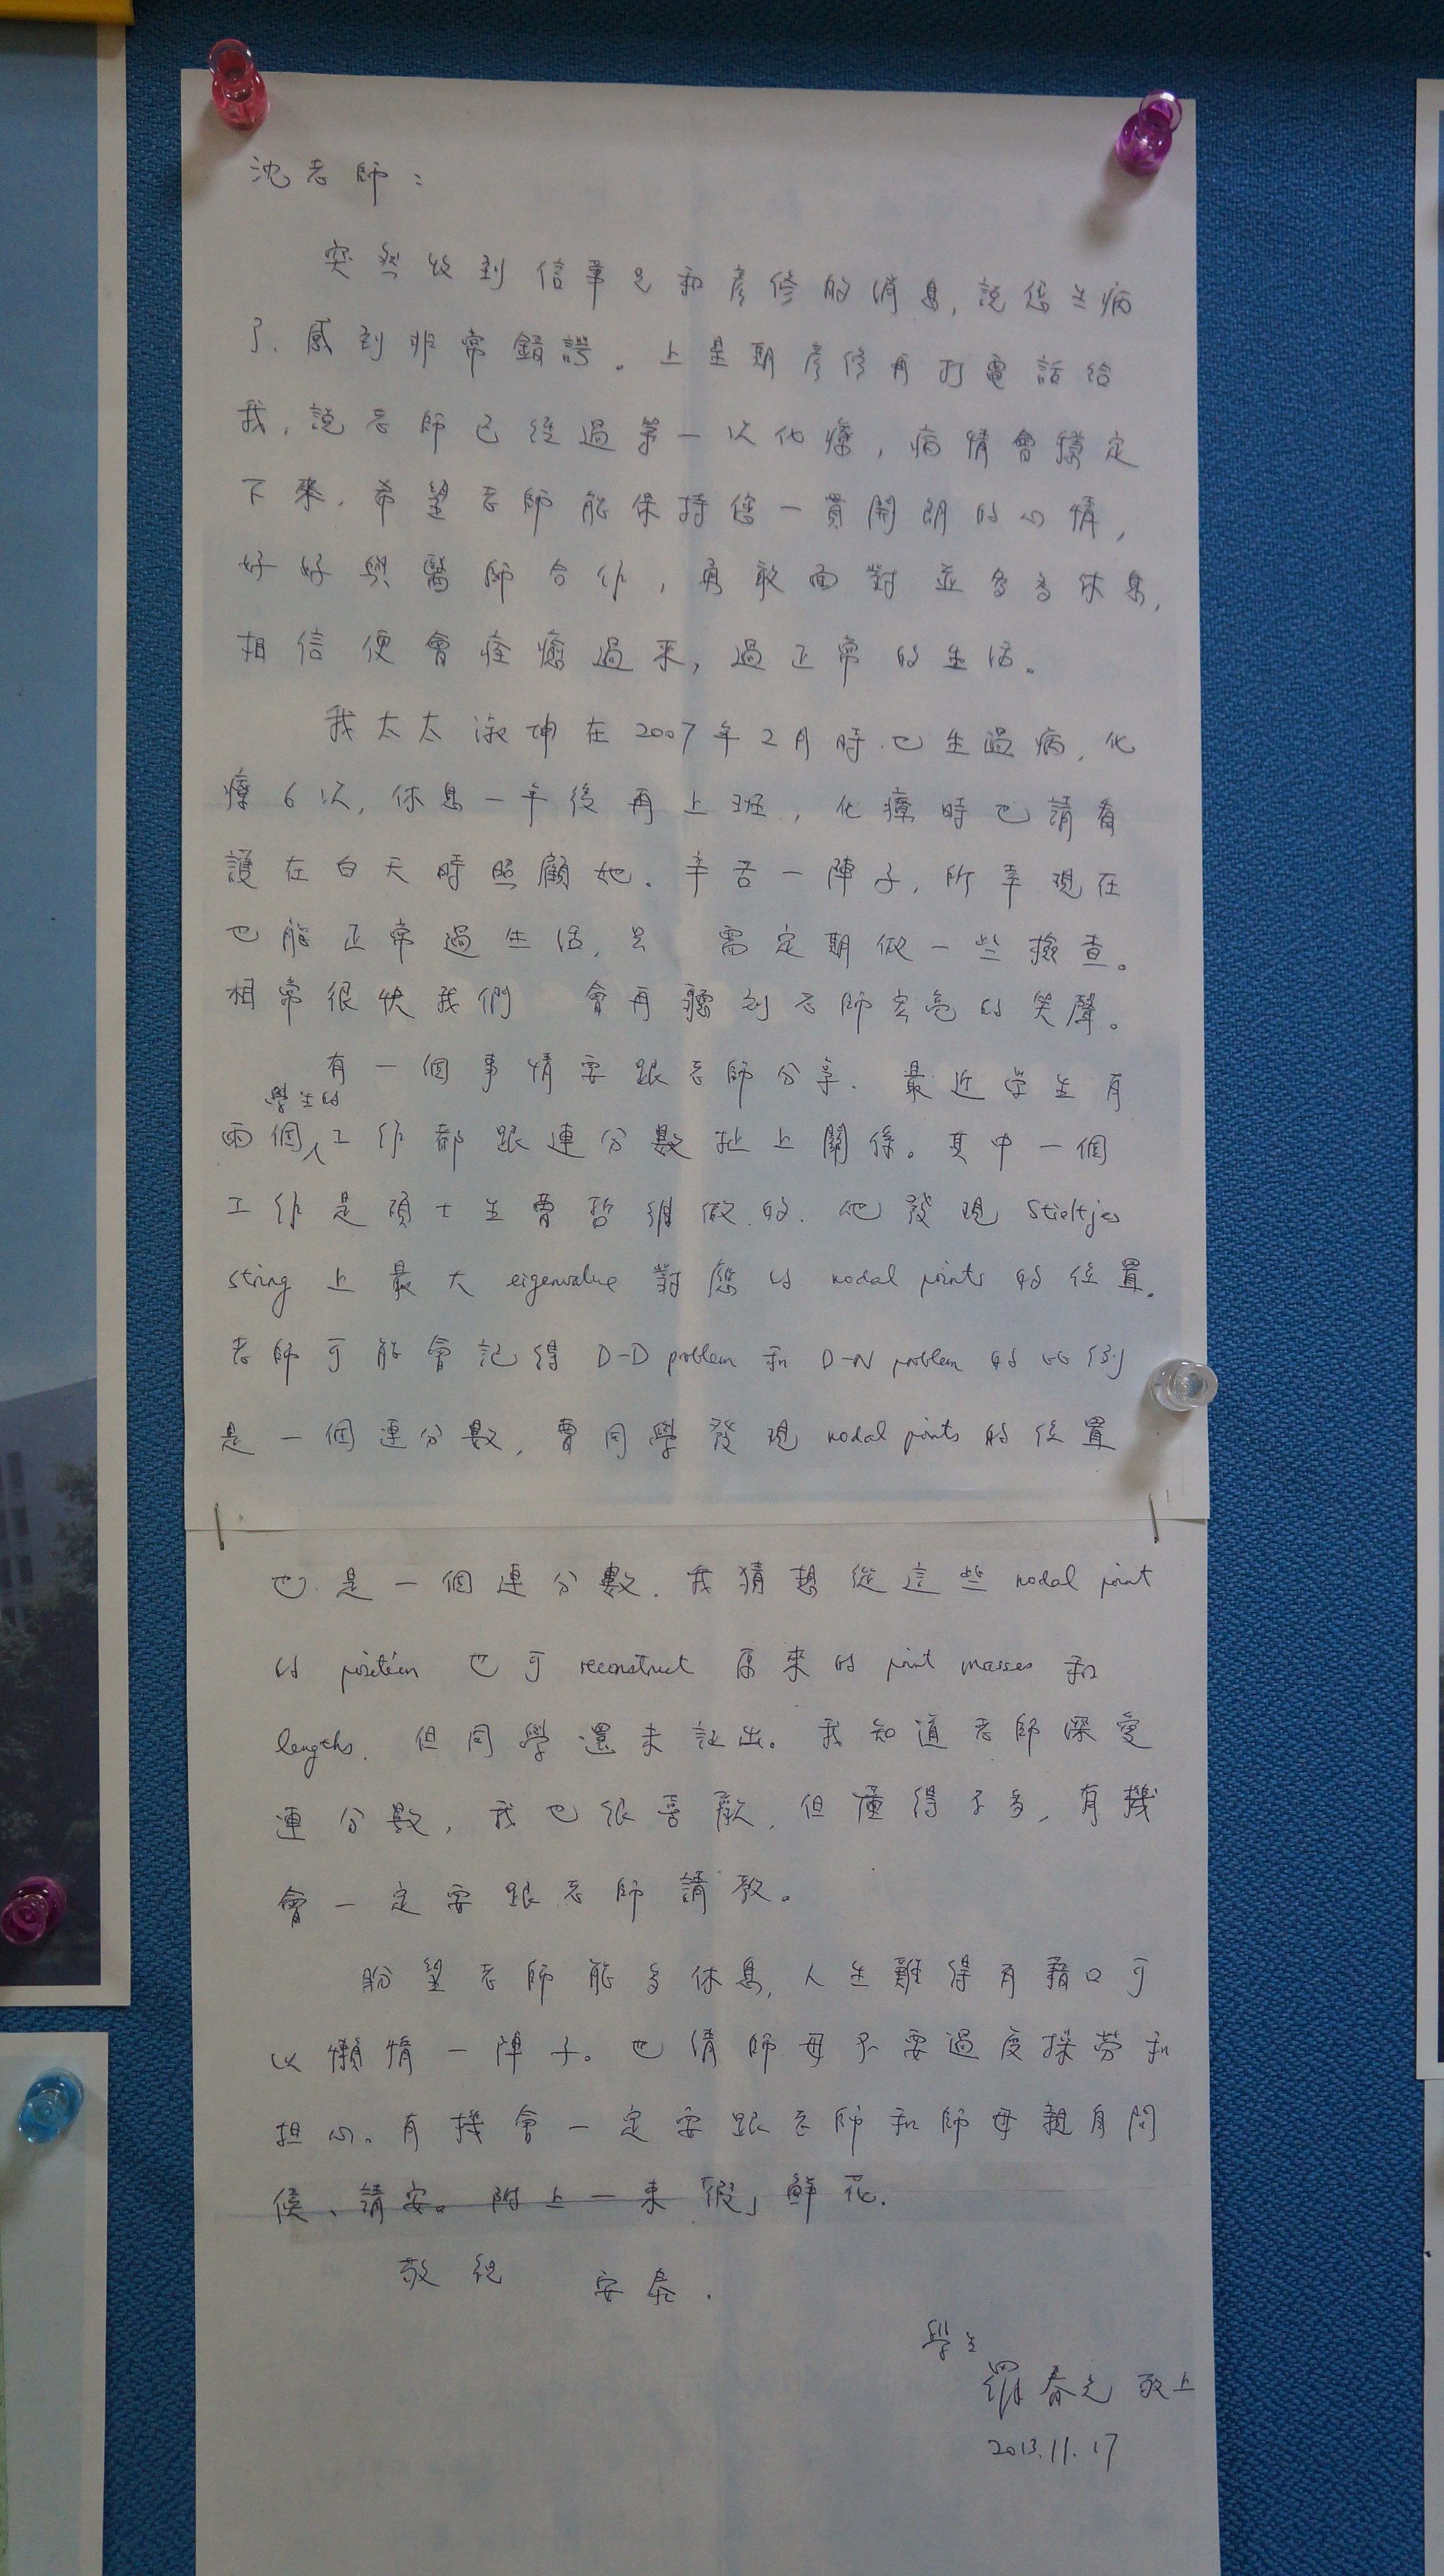 沈老師：
突然收到信華兄和彥修的消息, 說您生病
了, 感到非常錯諤。上星期彥修再打電話給
我, 說老師已經過第一次化療, 病情會穩定
下來. 希望老師能保持您一貫開朗的心情,
好好與醫師合作, 勇敢面對並多多休息,
相信便會痊癒過來, 過正常的生活。
我太太淑坤在2007年2月時也生過病, 化
療6次, 休息一年後再上班, 化療時也請看
護在白天時照顧她. 辛苦一陣子, 所幸現在
也能正常過生活, 只 需定期做一些檢查。
相常很快我們 會再聽到老師宏亮的笑聲。
有一個事情要跟老師分享. 最近學生有
學生的
兩個工作都跟連分數扯上關係。其中一個
工作是碩士生曹哲維做的. 他發現 Stieltjes
string 上最大 eigenvalue 對應的 nodal points 的位置.
老師可能會記得 D-D problem 和 D-N problem 的比例
是一個連分數, 曹同學發現 nodal points 的位置
也是一個連分數. 我猜想從這些 nodal point
的 position 也可 reconstruct 原來的 point masses 和
lengths. 但同學還未証出。我知道老師深愛
連分數, 我也很喜歡, 但懂得不多, 有機
會一定要跟老師請教。
盼望老師能多休息, 人生難得有藉口可
以懶惰一陣子。也請師母不要過度操勞和
担心。有機會一定要跟老師和師母親自問
候、請安。附上一束「假」鮮花.
敬祝 安泰.
學生
羅春光 敬上
2013.11.17